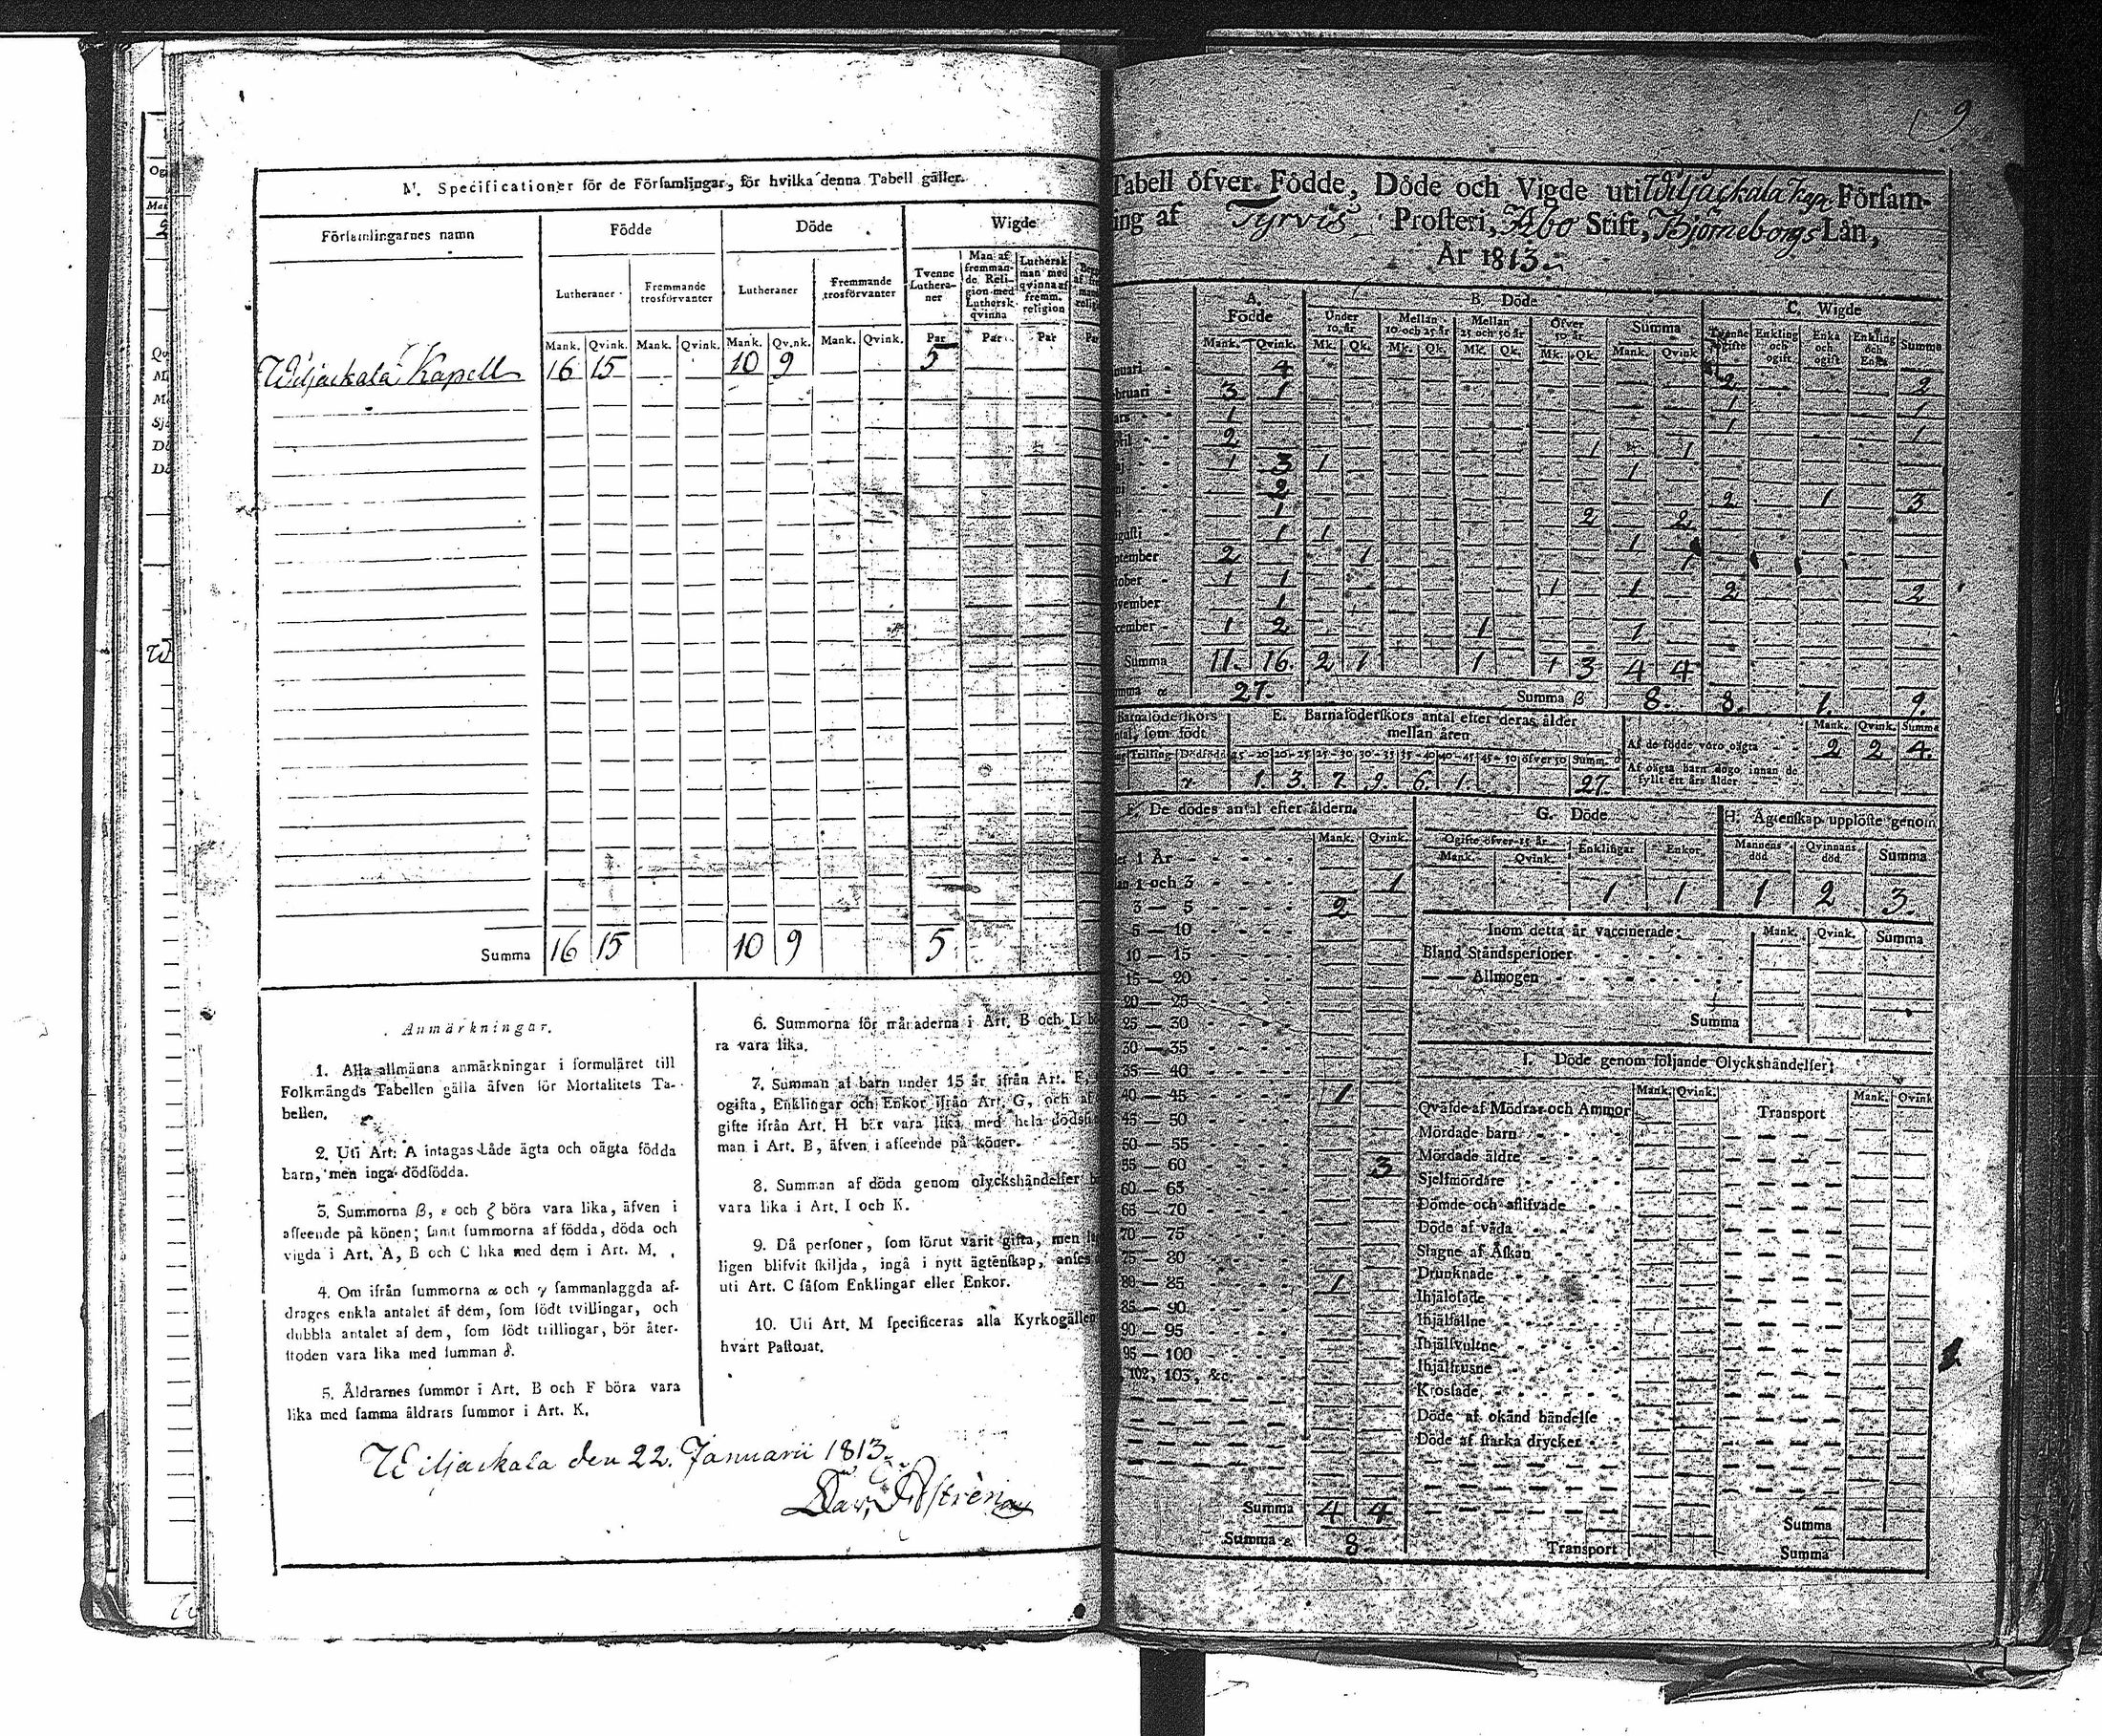 M. Specificationer för de Församlingar, för hvilka denna Tabell gäller.
Församlingarnes namn
Födde
Döde
Wigde
Lutheraner
Fremmande trosförvanter
Lutheraner
Fremmande trosförvanter
Tvenne Lutheraner
Man af fremmande Religion med Luthersk qvinna
Luthersk man med qvinna af fremm. religion
Mank. Qvink. Mank. Qvink. Mank. Qvink. Mank. Qvink. Par Par Par
Wiljackala Kapell 16 15 10 9 5
Summa 16 15 10 9 5
Anmärkningar.
1. Alla allmänna anmärkningar i formuläret till
Folkmängds Tabellen gälla äfven för Mortalitets Ta-
bellen.
2. Uti Art. A intagas både ägta och oägta födda
barn, men inga dödfödda.
3. Summorna β, ε och ζ böra vara lika, äfven i
afseende på könen; samt summorna af födda, döda och
vigda i Art. A, B och C lika med dem i Art. M.
4. Om ifrån summorna α och γ sammanlaggda af-
drages enkla antalet af dem, som födt tvillingar, och
dubbla antalet af dem, som födt trillingar, bör åter-
stoden vara lika med summan δ.
5. Åldrarnes summor i Art. B och F böra vara
lika med samma åldrars summor i Art. K.
6. Summorna för månaderna i Art. B och L
ra vara lika.
7. Summan af barn under 15 år ifrån Art. F,
ogifta, Enklingar och Enkor ifrån Art. G, och af
gifte ifrån Art. H bör vara lika med hela dödssu
man i Art. B, äfven i afseende på könen.
8. Summan af döda genom olyckshändelser
vara lika i Art. I och K.
9. Då personer, som förut varit gifta, men
ligen blifvit skiljda, ingå i nytt ägtenskap, anses
uti Art. C såsom Enklingar eller Enkor.
10. Uti Art. M specificeras alla Kyrkogällen
hvart Pastorat.
Wiljackala den 22. Januarii 1813.
9
Tabell öfver Födde, Döde och Vigde uti Wiljackala Kapl Försam-
ing af Tyrvis Prosteri, Åbo Stift, Björneborgs Län,
År 1813.
A. Födde
B. Döde
C. Wigde
Under 10 år
Mellan 10 och 25 år
Mellan 25 och 50 år
Öfver 50 år
Summa
Tvenne ogifte
Enkling och ogift
Enka och ogift
Enkling och Enka
Summa
Mank. Qvink. Mk. Qk. Mk. Qk. Mk. Qk. Mk. Qk. Mank. Qvink
nuari 4 2 2
bruari 3 1 1 1
ars 1 1 1
ril 2 1 1
aj 1 3 1 1
ni 2 2 1 3
1 2 2
ugusti 1 1 1
ptember 2 1 1
tober 1 1 1 1 2 2
ovember 1
cember 1 2 1 1
Summa 11. 16. 2 1 1 1 3 4 4
Summa α 27. Summa β 8. 8. 1. 9.
Barnaföderskors antal, som födt
E. Barnaföderskors antal efter deras ålder mellan åren
Trilling Dödfödd 15-20 20-25 25-30 30-35 35-40 40-45 45-50 öfver 50 Summ. δ
1. 3. 7. 9. 6. 1. 27.
Mank. Qvink. Summa
Af de födde voro oägta 2 2 4.
Af oägta barn dogo innan de
fyllt ett års ålder
F. De dödes antal efter åldern.
Mank. Qvink.
er 1 År
an 1 och 3 1
3 — 5 2
5 — 10
10 — 15
15 — 20
20 — 25
25 — 30
30 — 35
35 — 40
40 — 45 1
45 — 50
50 — 55
55 — 60 3
60 — 65
65 — 70
70 — 75
75 — 80
80 — 85 1
85 — 90
90 — 95
95 — 100
102, 103, &c.
Summa 4 4
Summa ε 8
G. Döde
Ogifte öfver 15 år
Enklingar
Enkor
Mank. Qvink.
1 1
H. Ägtenskap upplöste genom
Mannens död
Qvinnans död
Summa
1 2 3.
Inom detta år vaccinerade:
Mank. Qvink. Summa
Bland Ståndspersoner
— — Allmogen
Summa
I. Döde genom följande Olyckshändelser:
Mank. Qvink.
Mank. Qvink
Qväfde af Mödrar och Ammor
Transport
Mördade barn
Mördade äldre
Sjelfmördare
Dömde och aflifvade
Döde af våda
Slagne af Åskan
Drunknade
Ihjälosade
Ihjälfallne
Ihjälsvultne
Ihjälfrusne
Krossade
Döde af okänd händelse
Döde af starka drycker
Summa
Transport
Summa